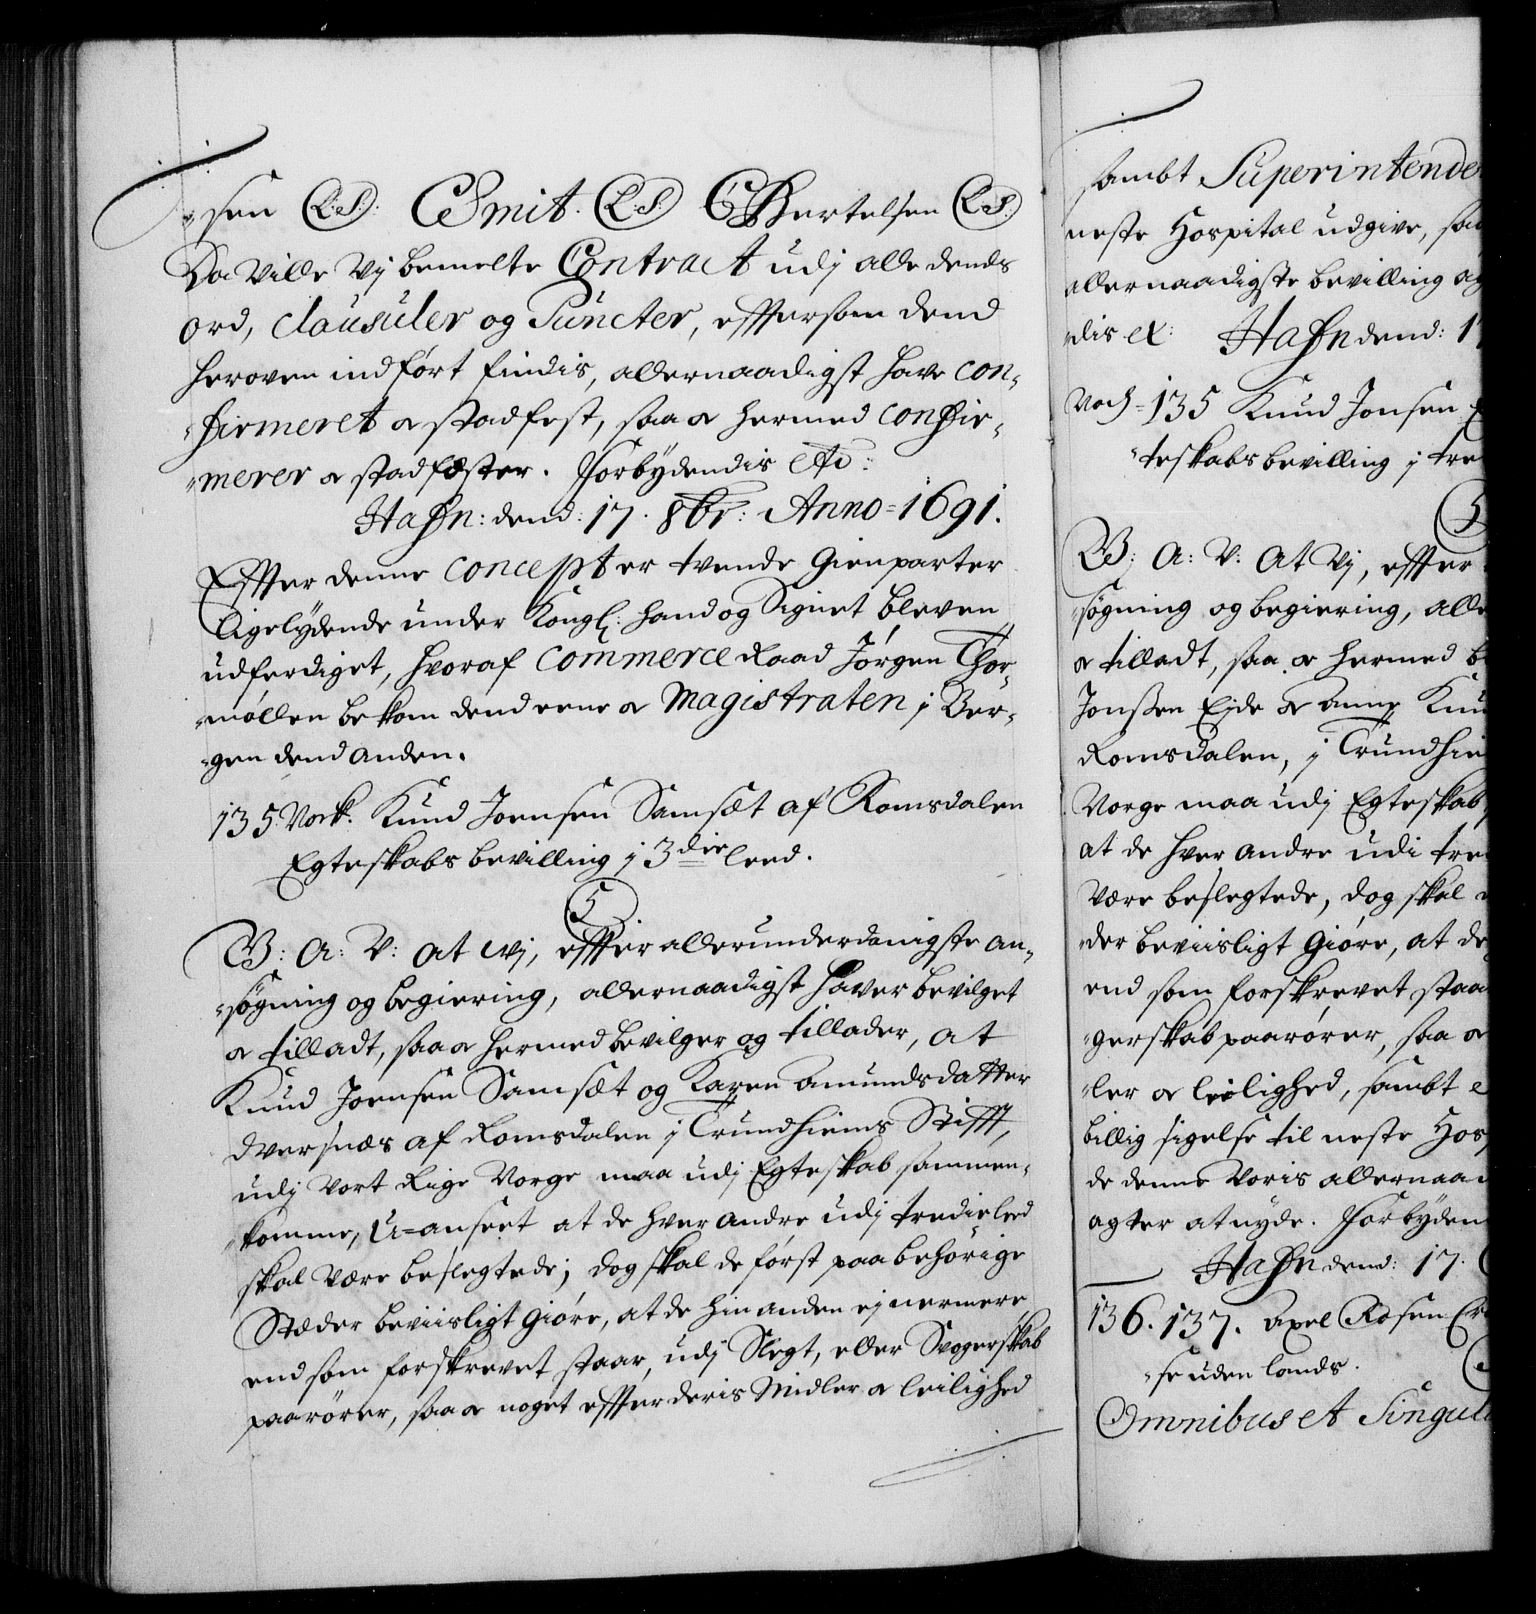 -sen (L:S): C Smit. (L:S:) G Bertelsen (L:S:)
Da Ville Vj bemelte Contract udj alle dends
ord, clausuler og Puncter, effter som dend
heroven indført findis, allernaadigst have con-
-firmeret og stadfest, saa og hermed confir-
-merer og stadfæster. Forbydendis etc:
Hafn: dend: 17. 8br: Anno = 1691.
Effter denne concept er tvende Gienparter
ligelydende under Kongl: Hand og Signet bleven
udferdiget, hvoraf Commerce Raad Jørgen Thor-
-møllen bekom dend eene og Magistraten j Ber-
-gen dend anden.
135 Vock. Knud Joensen Samsæt af Romsdalen
Egteskabs bevilling j 3die leed.
5
V: A: V: At wj, effter allerunderdanigste an-
-søgning og begiering, allernaadigst haver bevilget
og tilladt, saa og hermed bevilger og tillader, at
Knud Joensen Samsæt og Karen Amundsdatter
Dversnæs af Romsdalen j Trundhiems Stifft,
udj Vort Rige Norge maa udj Egteskab sammen-
-komme, U-anseet at de hver andre udj tredie leed
skal være beslegtede; dog skal de først paa behørige
Stæder beviisligt giøre, at de hinanden ej nermere
end som forskrevet staar, udj Slegt, eller Svogerskab
paarører, saa og noget effter deris Midler og leilighed
sambt Superintende
neste Hospital udgive, saa
allernaadigste bevilling og
-dis etc: Hafn dend: 17
Vock = 135 Knud Jonsen E
-teskabs bevilling j tre
5
V: A: V: At Vj, effter
-søgning og begiering, alle
og tilladt, saa og hermed b
Jonsen Eide og Anne Knu
Romsdalen, j Trundhie
Norge maa udj Egteskab
at de hver andre udi tre
være beslegtede, dog skal
-der beviisligt giøre, at de
end som forskrevet staa
-gerskab paarører, saa og
-ler og leilighed, sambt e
billig sigelse til neste Hos
de denne Voris allernaa
agter at nyde. Forbyden
Hafn dend: 17.
136. 137. Axel Rosen Cr
-se uden lands.
Omnibus et Singul